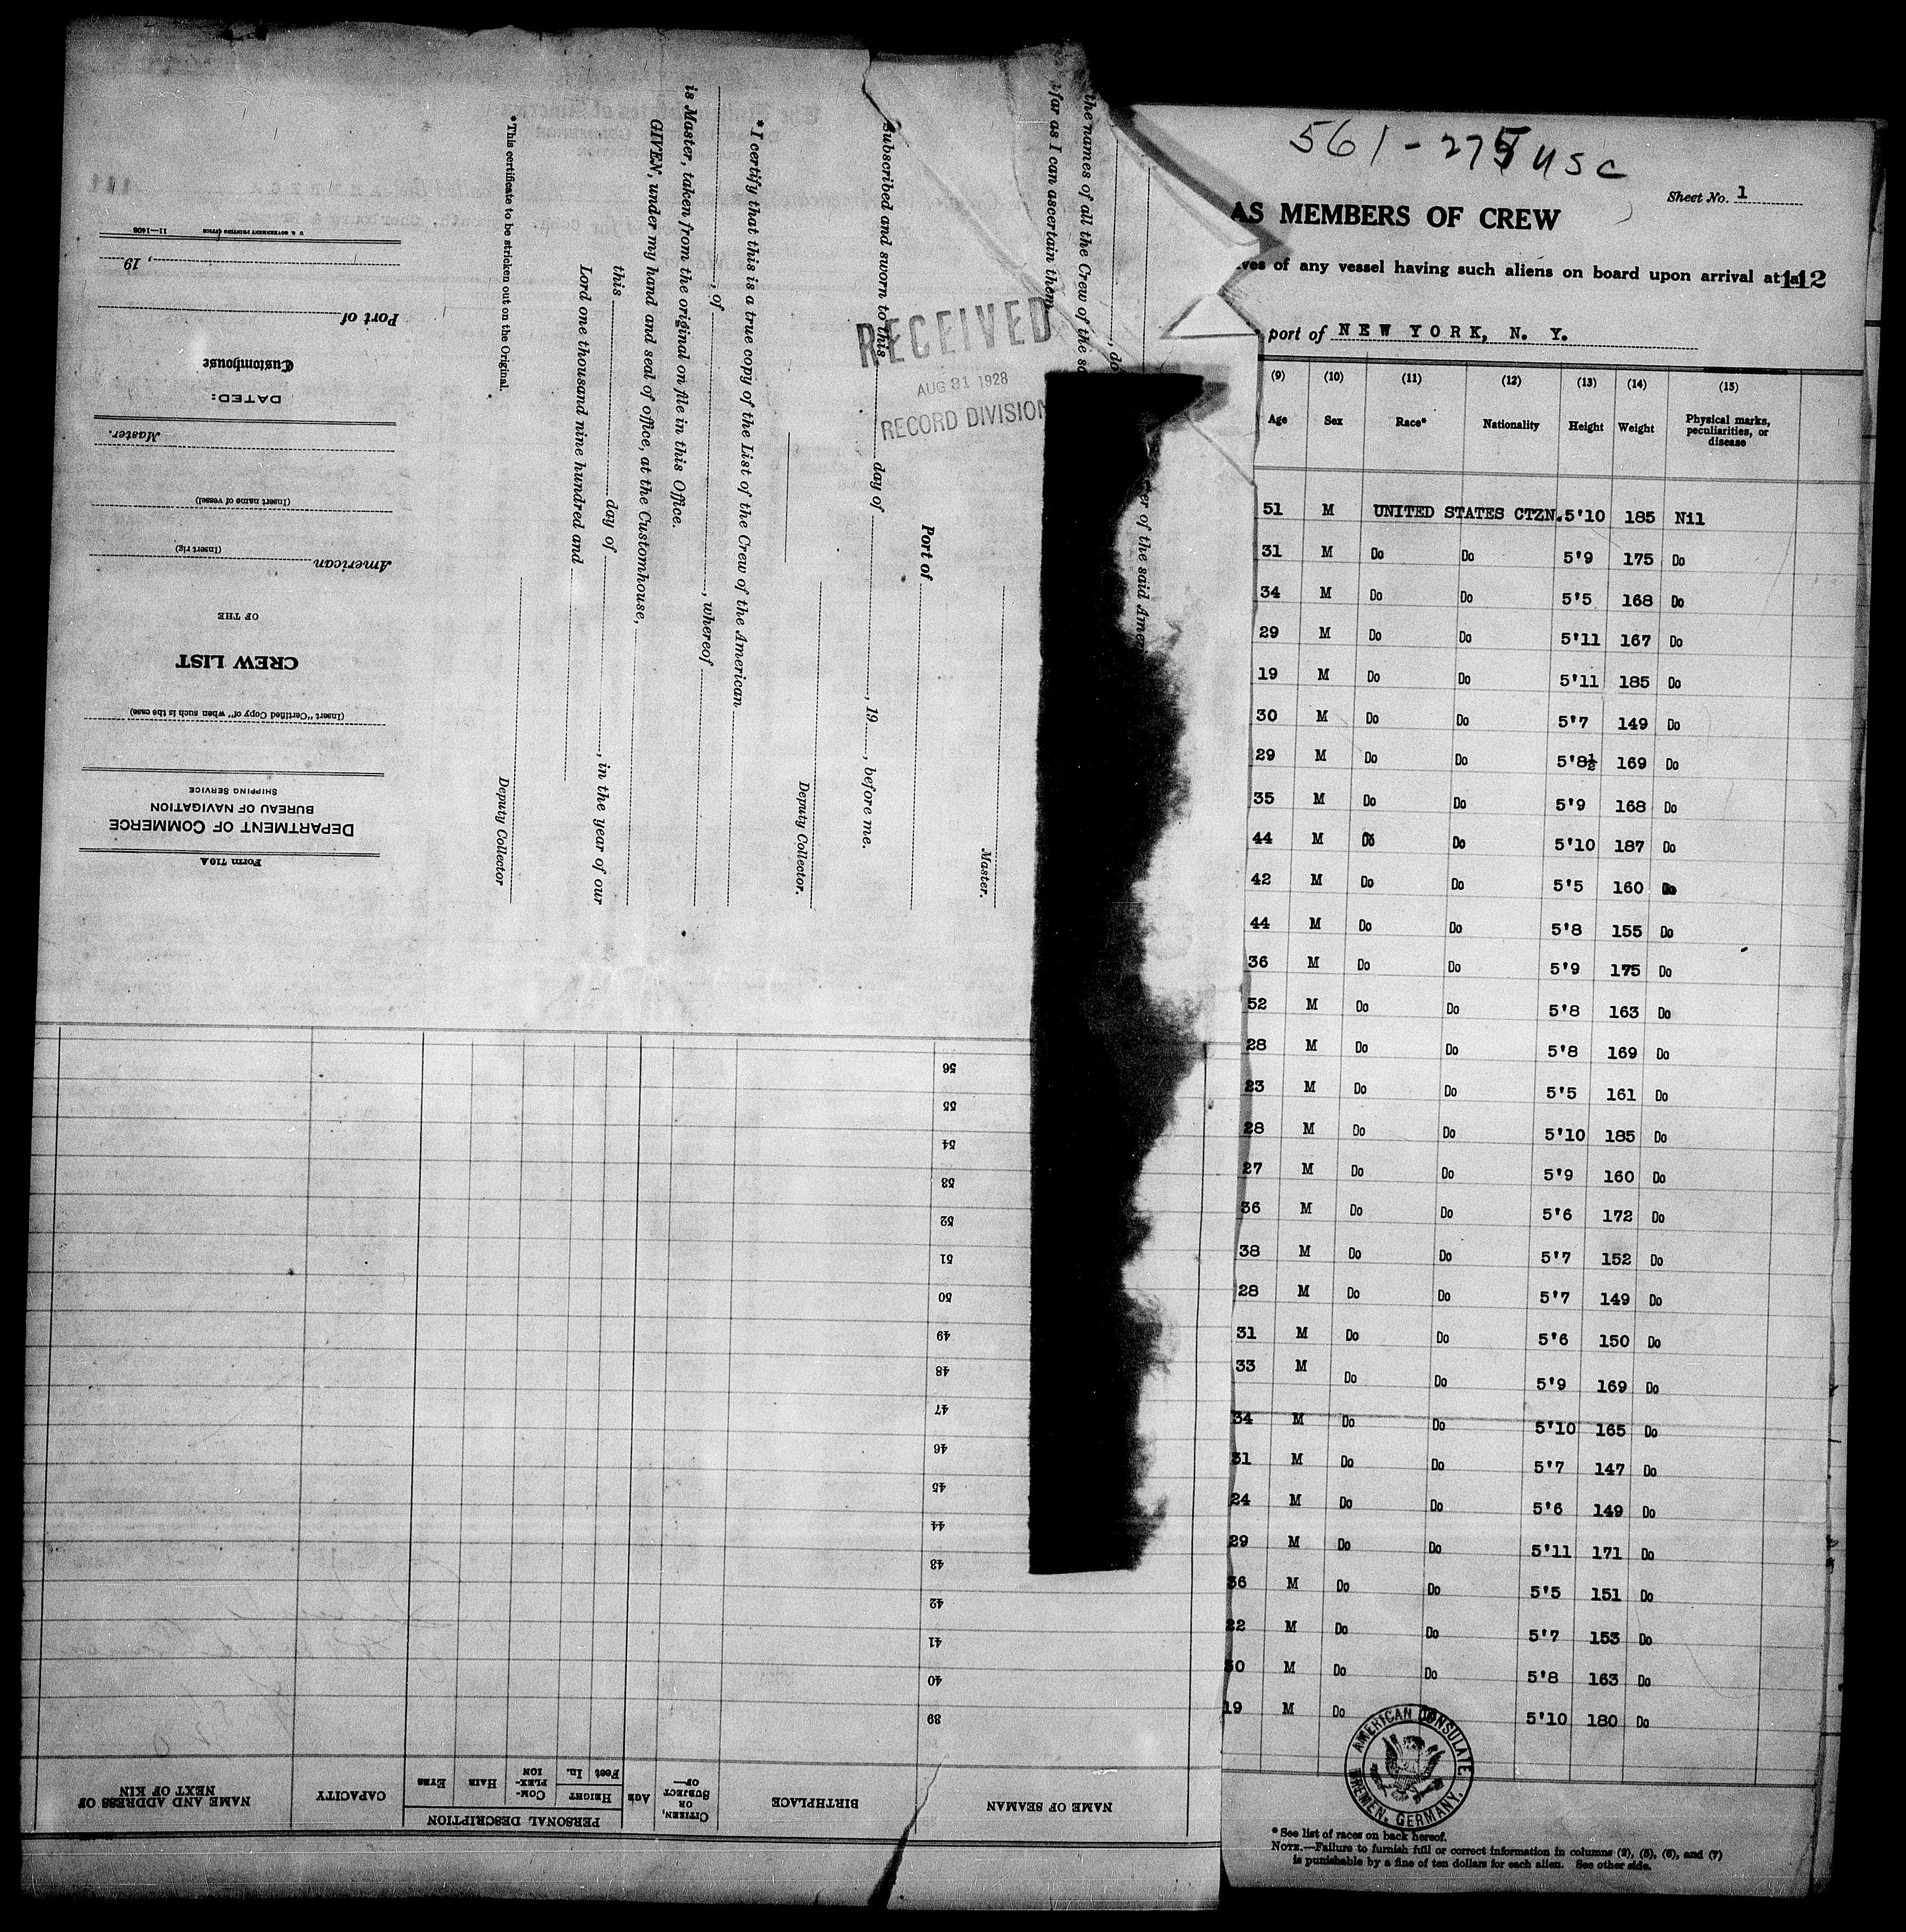 561 - 275 USC
Sheet No. 1
AS MEMBERS OF CREW
ves of any vessel having such aliens on board upon arrival at
112
port of NEW YORK, N. Y.
(9) (10) (11) (12) (13) (14) (15)
Age Sex Race* Nationality Height Weight Physical marks, peculiarities, or disease
51 M UNITED STATES CTZN. 5'10 185 Nil
31 M Do Do 5'9 175 Do
34 M Do Do 5'5 168 Do
29 M Do Do 5'11 167 Do
19 M Do Do 5'11 185 Do
30 M Do Do 5'7 149 Do
29 M Do Do 5'8½ 169 Do
35 M Do Do 5'9 168 Do
44 M Do Do 5'10 187 Do
42 M Do Do 5'5 160 Do
44 M Do Do 5'8 155 Do
36 M Do Do 5'9 175 Do
52 M Do Do 5'8 163 Do
28 M Do Do 5'8 169 Do
23 M Do Do 5'5 161 Do
28 M Do Do 5'10 185 Do
27 M Do Do 5'9 160 Do
36 M Do Do 5'6 172 Do
38 M Do Do 5'7 152 Do
28 M Do Do 5'7 149 Do
31 M Do Do 5'6 150 Do
33 M Do Do 5'9 169 Do
34 M Do Do 5'10 165 Do
31 M Do Do 5'7 147 Do
24 M Do Do 5'6 149 Do
29 M Do Do 5'11 171 Do
36 M Do Do 5'5 151 Do
22 M Do Do 5'7 153 Do
30 M Do Do 5'8 163 Do
19 M Do Do 5'10 180 Do
AMERICAN CONSULATE
BREMEN, GERMANY.
* See list of races on back hereof.
NOTE.—Failure to furnish full or correct information in columns (2), (5), (6), and (7)
is punishable by a fine of ten dollars for each alien. See other side.
the names of all the Crew of the
far as I can ascertain them
, do
er of the said Amer
Master.
Port of
Subscribed and sworn to this day of , 19 , before me.
Deputy Collector.
* I certify that this is a true copy of the List of the Crew of the American
, of , whereof
is Master, taken from the original on file in this Office.
GIVEN, under my hand and seal of office, at the Customhouse,
this day of , in the year of our
Lord one thousand nine hundred and
Deputy Collector
*This certificate to be stricken out on the Original.
RECEIVED
AUG 31 1928
RECORD DIVISION
Form 710A
DEPARTMENT OF COMMERCE
BUREAU OF NAVIGATION
SHIPPING SERVICE
(Insert "Certified Copy of" when such is the case)
CREW LIST
OF THE
American
(Insert rig)
(Insert name of vessel)
Master.
DATED:
Customhouse
Port of
, 19
U. S. GOVERNMENT PRINTING OFFICE 11—1408
NAME OF SEAMAN BIRTHPLACE CITIZEN, OR SUBJECT OF— AGE PERSONAL DESCRIPTION CAPACITY NAME AND ADDRESS OF NEXT OF KIN
HEIGHT COM-PLEX-ION HAIR EYES
Feet In.
39
40
41
42
43
44
45
46
47
48
49
50
51
52
53
54
55
56